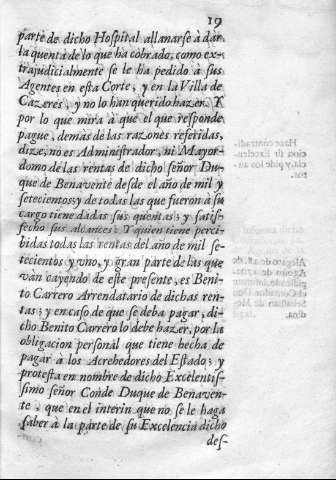 19
parte de dicho Hospital allanarse à dar
la quenta de lo que ha cobrado, como ex-
trajudicialmente se le ha pedido à sus
Agentes en esta Corte, y en la Villa de
Cazeres, y no lo han querido hazer. Y
por lo que mira à que el que responde
pague, demàs de las razones referidas,
dize, no es Administrador, ni Mayor-
domo de las rentas de dicho señor Du-
que de Benavente desde el año de mil y
setecientos; y de todas las que fueron à su
cargo tiene dadas sus quentas; y satis-
fecho sus alcances. Y quien tiene perci-
bidas todas las rentas del año de mil se-
tecientos y vno, y gran parte de las que
vàn cayendo de este presente, es Beni-
to Carrero Arrendatario de dichas ren-
tas; y en caso de que se deba pagar, di-
cho Benito Carrero lo debe hazer, por la
obligacion personal que tiene hecha de
pagar à los Acrehedores del Estado; y
protesta en nombre de dicho Excelentis-
simo señor Conde Duque de Benaven-
te, que en el interin que no se le haga
saber à la parte de su Excelencia dicho
des-